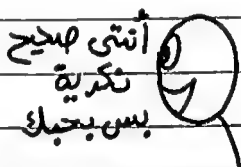 أنتى صحيح
نكدية
بس بحبك